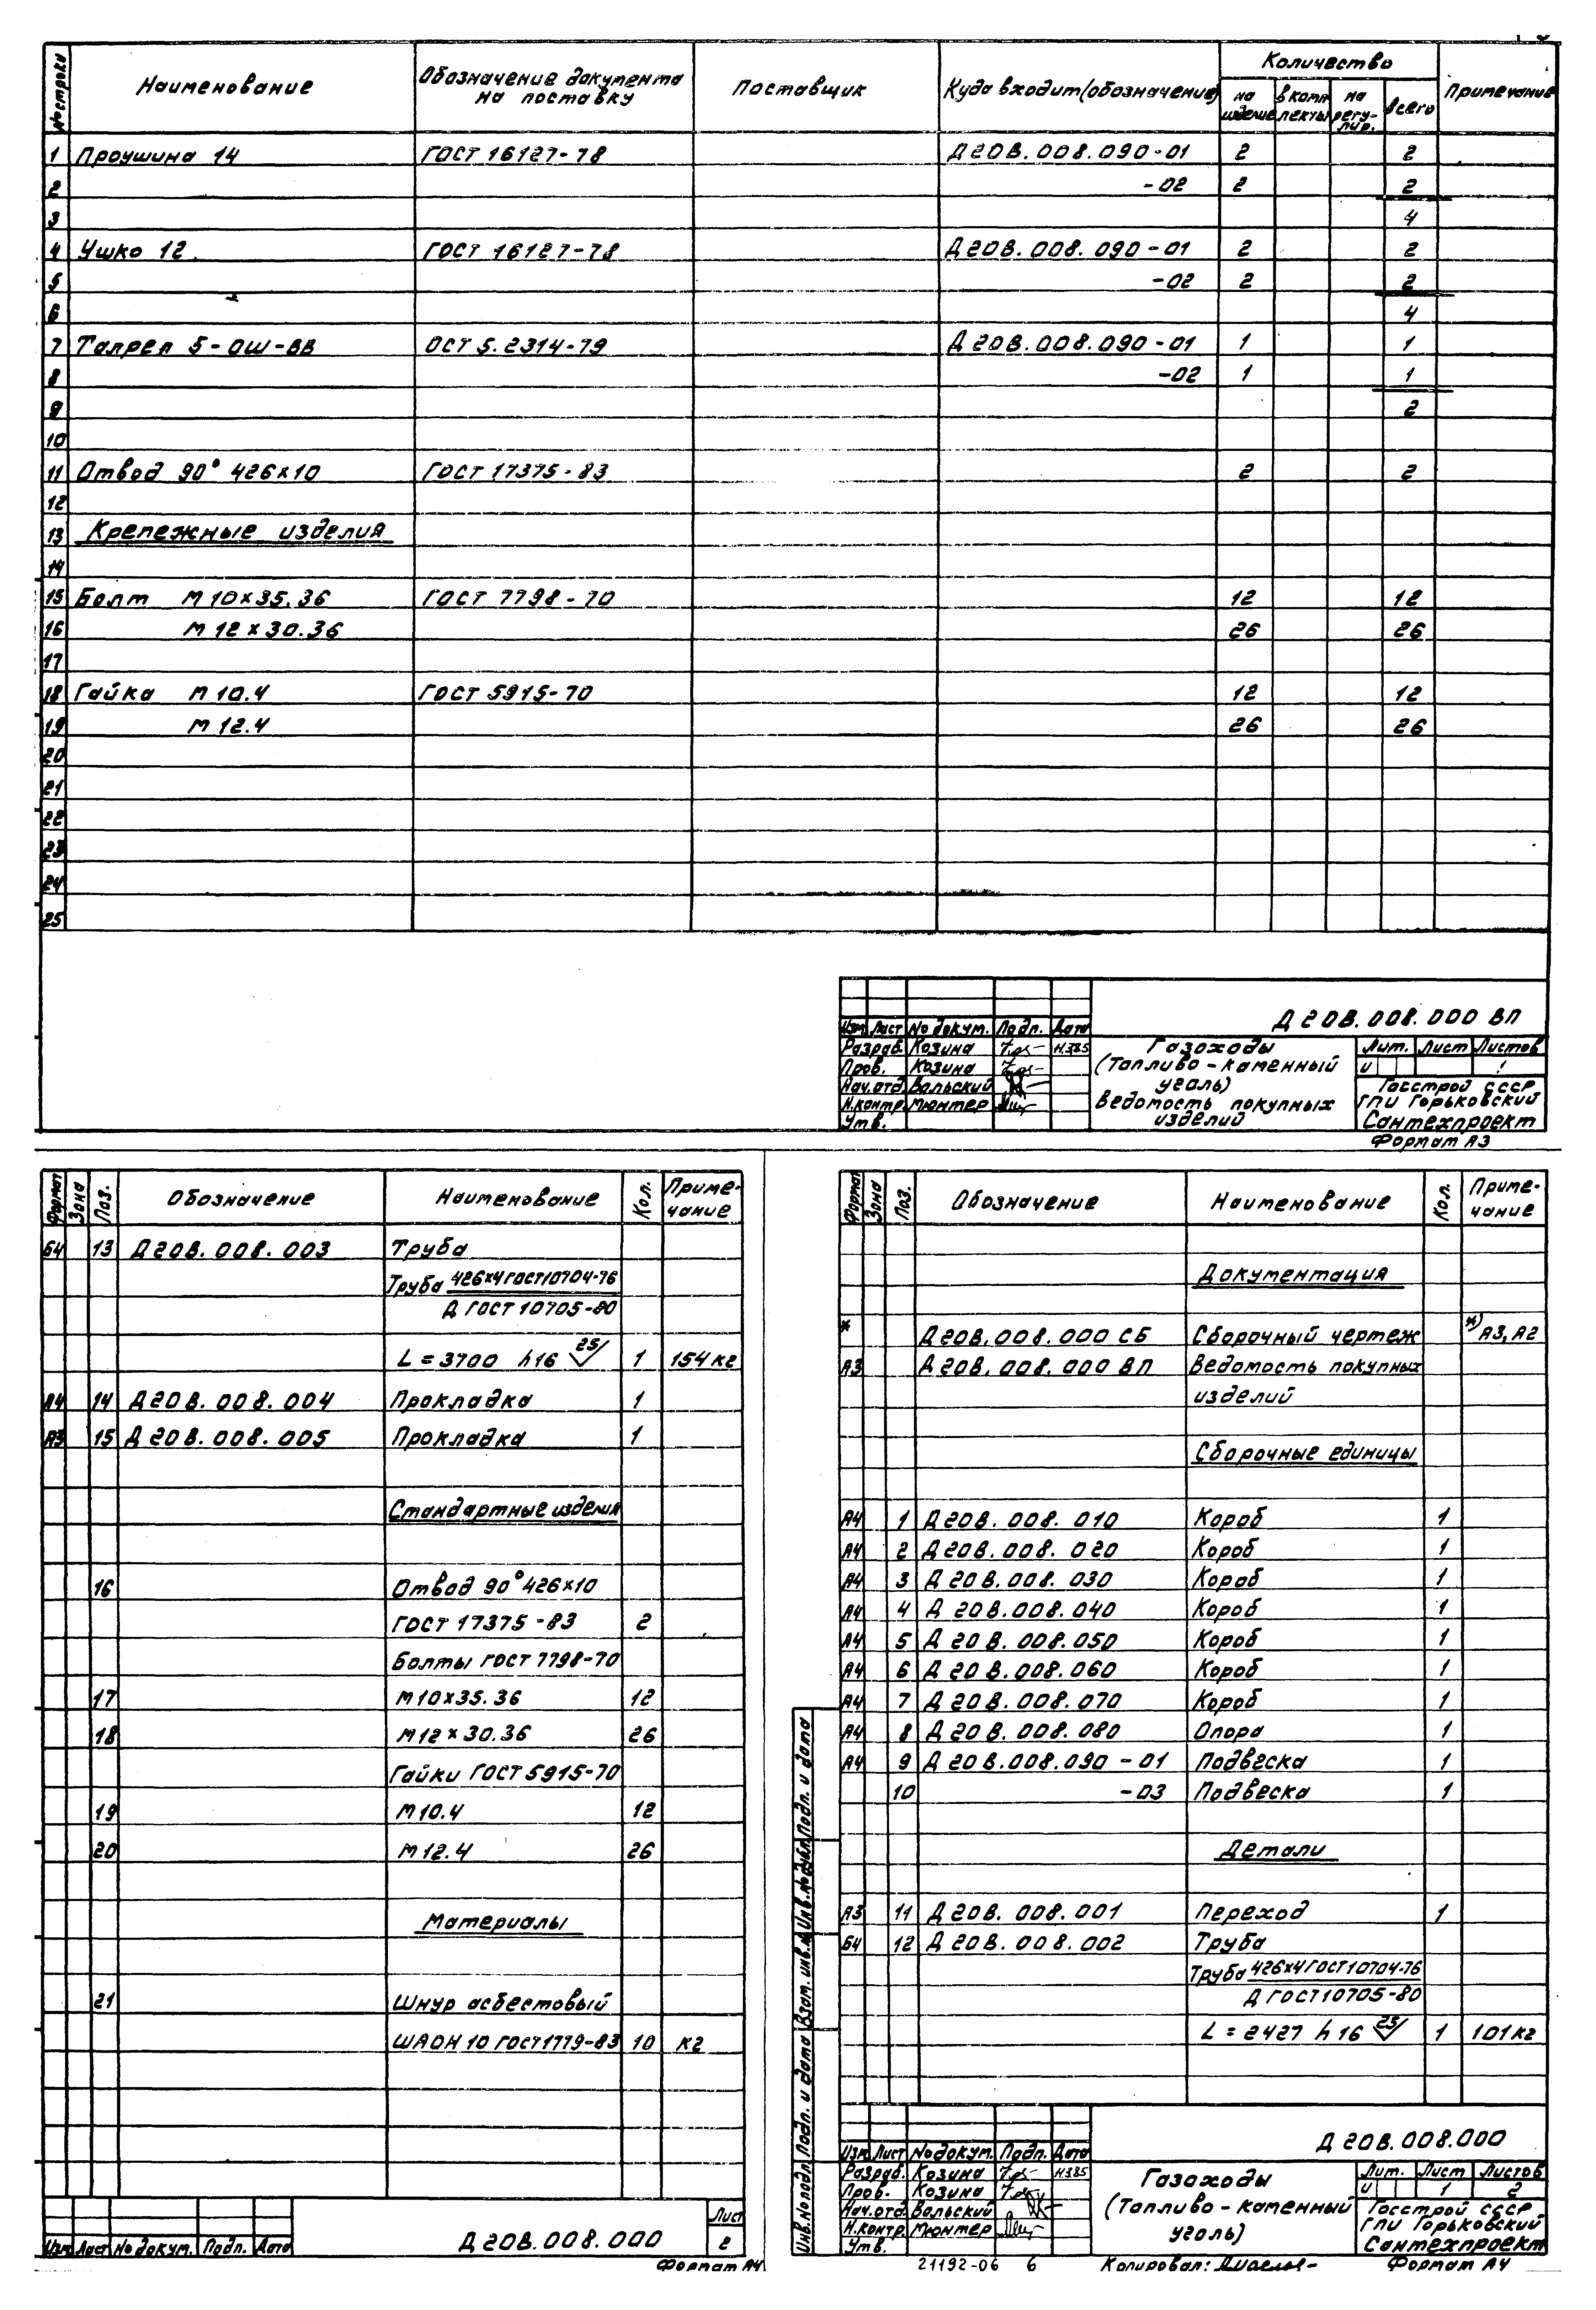 № строки Наименование Обозначение документа на поставку Поставщик Куда входит (обозначение) Количество Примечание
на изделие в комплекты на регулир. всего
1 Проушина 14 ГОСТ 16127-78 Д20В.008.090-01 2 2
2 -02 2 2
3 4
4 Ушко 12 ГОСТ 16127-78 Д20В.008.090-01 2 2
5 -02 2 2
6 4
7 Талреп 5-ОШ-ВВ ОСТ 5.2314-79 Д20В.008.090-01 1 1
8 -02 1 1
9 2
10
11 Отвод 90° 426×10 ГОСТ 17375-83 2 2
12
13 Крепежные изделия
14
15 Болт М10×35.36 ГОСТ 7798-70 12 12
16 М12×30.36 26 26
17
18 Гайка М10.4 ГОСТ 5915-70 12 12
19 М12.4 26 26
20
21
22
23
24
25
Д20В.008.000 ВП
Изм Лист № докум. Подп. Дата
Разраб. Козина
Пров. Козина
Нач.отд. Вольский
Н.контр. Мюнтер
Утв.
Газоходы
(Топливо-каменный
уголь)
Ведомость покупных
изделий
Лит. Лист Листов
И 1
Госстрой СССР
ГПИ Горьковский
Сантехпроект
Формат А3
Формат Зона Поз. Обозначение Наименование Кол. Примечание
Б4 13 Д20В.008.003 Труба
Труба 426×4 ГОСТ 10704-76
Д ГОСТ 10705-80
L=3700 h16 25 1 154 кг
А4 14 Д20В.008.004 Прокладка 1
А3 15 Д20В.008.005 Прокладка 1
Стандартные изделия
16 Отвод 90° 426×10
ГОСТ 17375-83 2
Болты ГОСТ 7798-70
17 М10×35.36 12
18 М12×30.36 26
Гайки ГОСТ 5915-70
19 М10.4 12
20 М12.4 26
Материалы
21 Шнур асбестовый
ШАОН 10 ГОСТ 1779-83 10 кг
Изм Лист № докум. Подп. Дата
Д20В.008.000
Лист
2
Формат А4
Формат Зона Поз. Обозначение Наименование Кол. Примечание
Документация
* Д20В.008.000 СБ Сборочный чертеж *) А3, А2
А3 Д20В.008.000 ВП Ведомость покупных
изделий
Сборочные единицы
А4 1 Д20В.008.010 Короб 1
А4 2 Д20В.008.020 Короб 1
А4 3 Д20В.008.030 Короб 1
А4 4 Д20В.008.040 Короб 1
А4 5 Д20В.008.050 Короб 1
А4 6 Д20В.008.060 Короб 1
А4 7 Д20В.008.070 Короб 1
А4 8 Д20В.008.080 Опора 1
А4 9 Д20В.008.090-01 Подвеска 1
10 -03 Подвеска 1
Детали
А3 11 Д20В.008.001 Переход 1
Б4 12 Д20В.008.002 Труба
Труба 426×4 ГОСТ 10704-76
Д ГОСТ 10705-80
L=2427 h16 25 1 101 кг
Инв.№ подл. Подп. и дата Взам. инв.№ Инв.№ дубл. Подп. и дата
Д20В.008.000
Изм Лист № докум. Подп. Дата
Разраб. Козина
Пров. Козина
Нач.отд. Вольский
Н.контр. Мюнтер
Утв.
Газоходы
(Топливо-каменный
уголь)
Лит. Лист Листов
И 1 2
Госстрой СССР
ГПИ Горьковский
Сантехпроект
21192-06 6 Копировал: Формат А4